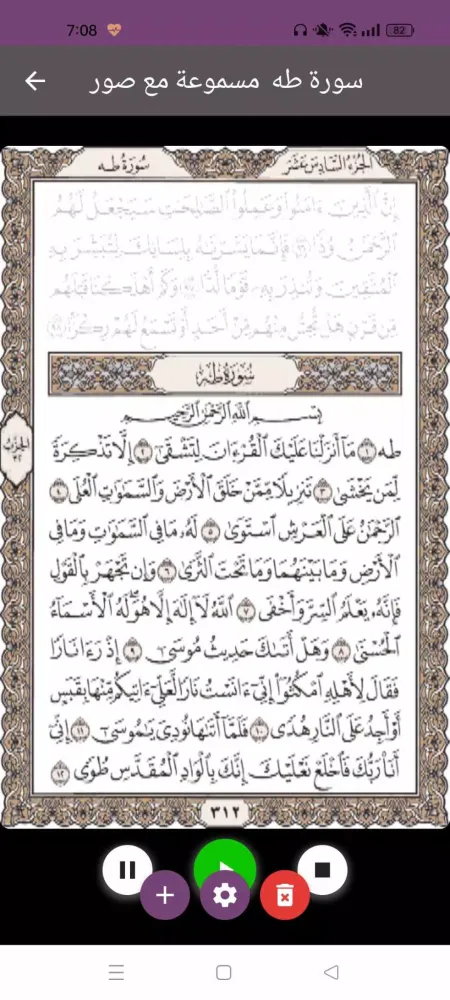 7:08
82
سورة طه مسموعة مع صور
الجزء السادس عشر
سورة طه
إِنَّ الَّذِينَ ءَامَنُوا وَعَمِلُوا الصَّٰلِحَٰتِ سَيَجْعَلُ لَهُمُ
الرَّحْمَٰنُ وُدًّا ٩٦ فَإِنَّمَا يَسَّرْنَٰهُ بِلِسَانِكَ لِتُبَشِّرَ بِهِ
الْمُتَّقِينَ وَتُنذِرَ بِهِۦ قَوْمًا لُّدًّا ٩٧ وَكَمْ أَهْلَكْنَا قَبْلَهُم
مِّن قَرْنٍ هَلْ تُحِسُّ مِنْهُم مِّنْ أَحَدٍ أَوْ تَسْمَعُ لَهُمْ رِكْزًا ٩٨
سُورَةُ طه
بِسْمِ اللَّهِ الرَّحْمَٰنِ الرَّحِيمِ
طه ١ مَآ أَنزَلْنَا عَلَيْكَ الْقُرْءَانَ لِتَشْقَىٰٓ ٢ إِلَّا تَذْكِرَةً
لِّمَن يَخْشَىٰ ٣ تَنزِيلًا مِّمَّنْ خَلَقَ الْأَرْضَ وَالسَّمَٰوَٰتِ الْعُلَى ٤
الرَّحْمَٰنُ عَلَى الْعَرْشِ اسْتَوَىٰ ٥ لَهُۥ مَا فِي السَّمَٰوَٰتِ وَمَا فِي
الْأَرْضِ وَمَا بَيْنَهُمَا وَمَا تَحْتَ الثَّرَىٰ ٦ وَإِن تَجْهَرْ بِالْقَوْلِ
فَإِنَّهُۥ يَعْلَمُ السِّرَّ وَأَخْفَى ٧ اللَّهُ لَآ إِلَٰهَ إِلَّا هُوَ لَهُ الْأَسْمَآءُ
الْحُسْنَىٰ ٨ وَهَلْ أَتَىٰكَ حَدِيثُ مُوسَىٰٓ ٩ إِذْ رَءَا نَارًا
فَقَالَ لِأَهْلِهِ امْكُثُوٓا إِنِّيٓ ءَانَسْتُ نَارًا لَّعَلِّيٓ ءَاتِيكُم مِّنْهَا بِقَبَسٍ
أَوْ أَجِدُ عَلَى النَّارِ هُدًى ١٠ فَلَمَّآ أَتَىٰهَا نُودِيَ يَٰمُوسَىٰٓ ١١ إِنِّيٓ
أَنَا۠ رَبُّكَ فَاخْلَعْ نَعْلَيْكَ إِنَّكَ بِالْوَادِ الْمُقَدَّسِ طُوًى ١٢
٣١٢